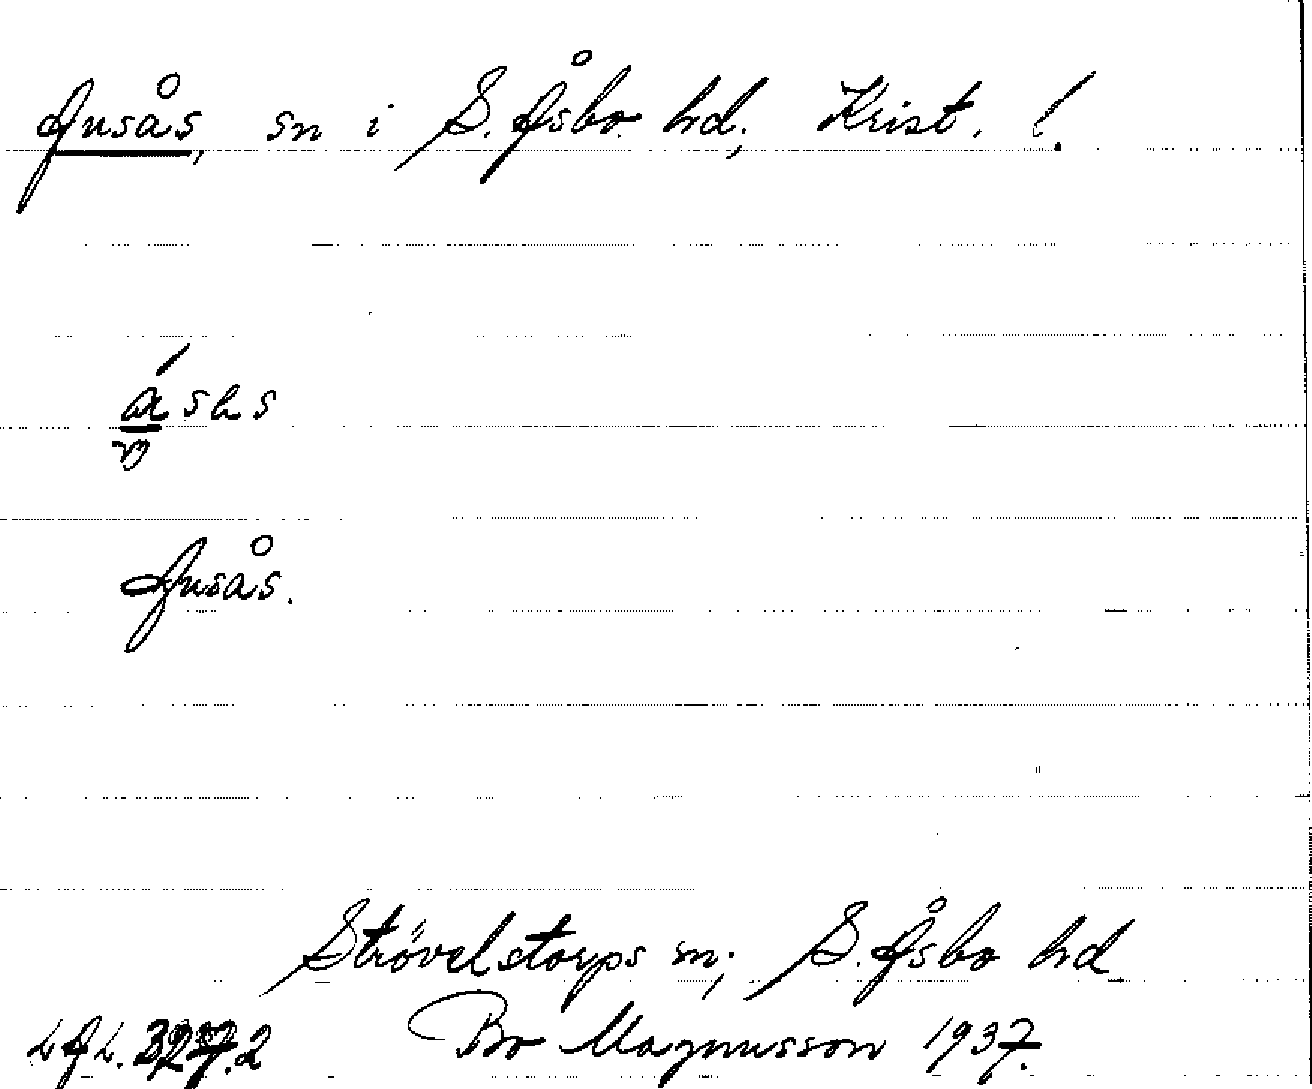 Ausås, sn i S. Åsbo hd, Krist. l.
Ausås.
Strövelstorps sn; S. Åsbo hd
Bo Magnusson 1937.